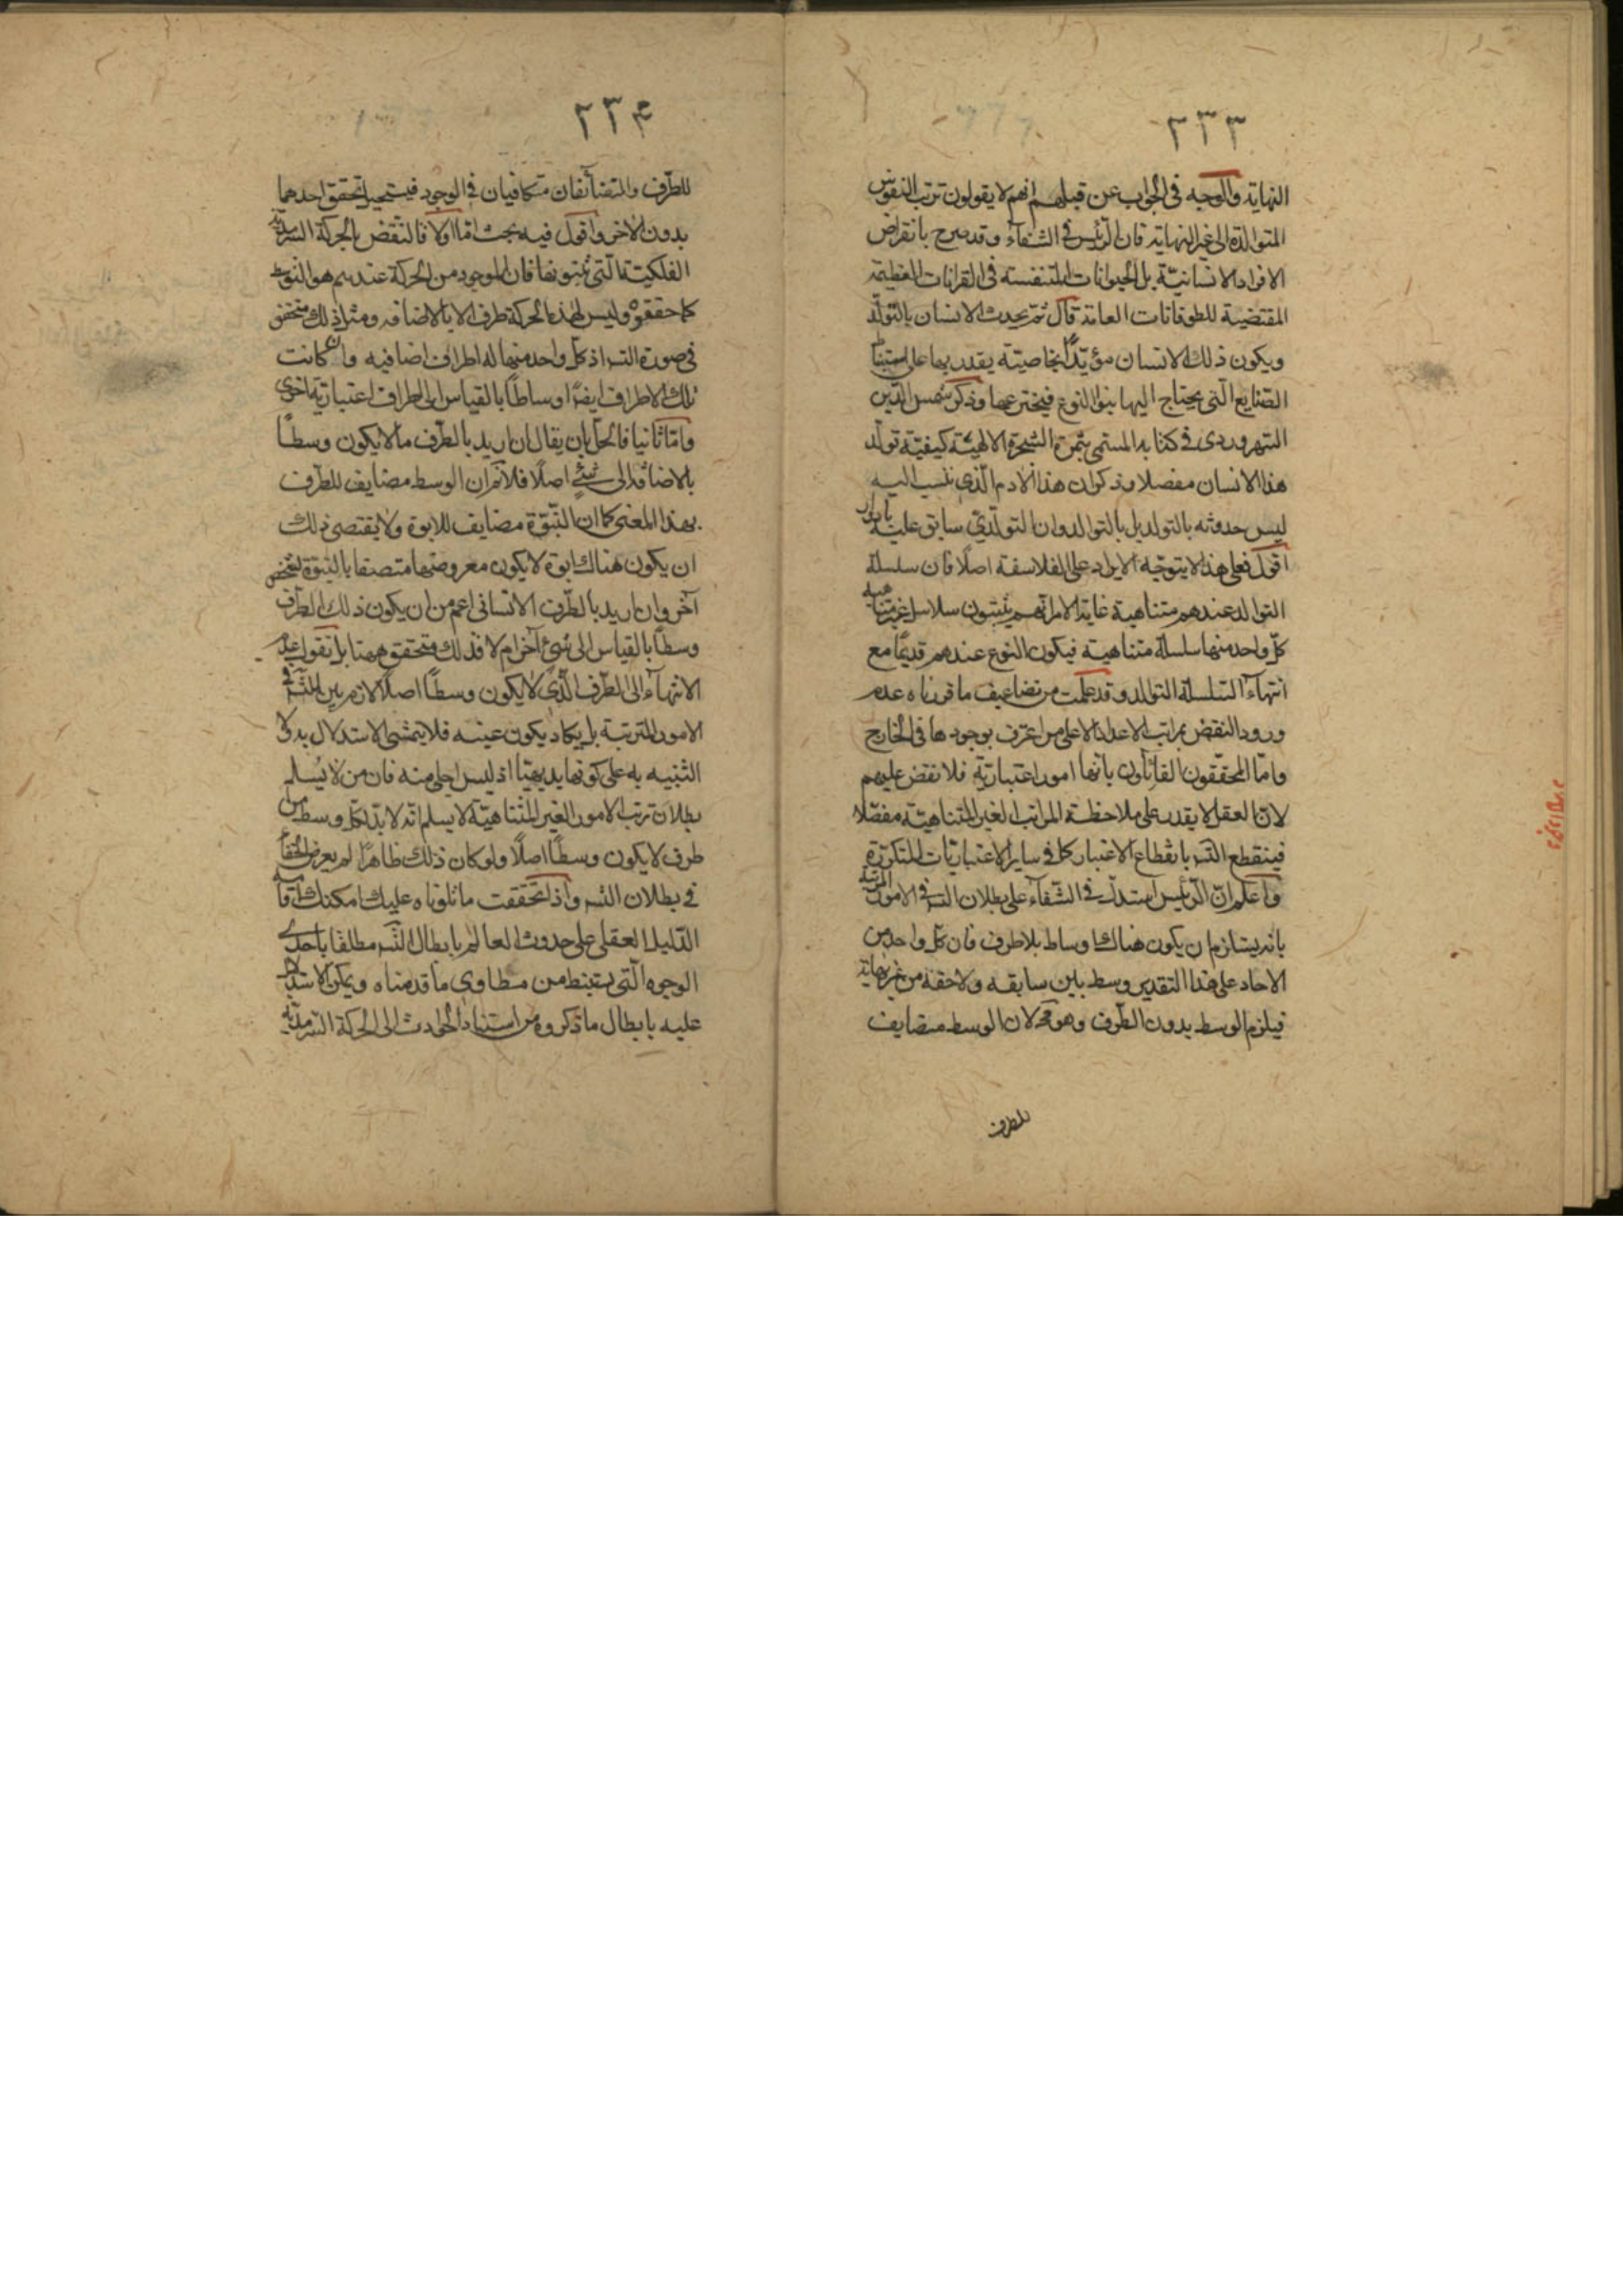 ٢٣٣
النهاية والوجه في الجواب عن قبلهم انهم لا يقولون ترتب النفوس
المتوالدة الى غير النهاية فان الرئيس في الشفآء وقد صرح بانقراض
الافراد الانسانية بل الحيوانات المتنفسة في القرانات العظيمة
المقتضية للطوفانات العامة قال ثم يحدث الانسان بالتولد
ويكون ذلك الانسان مؤيدًا بخاصيته يقدر بها على استنباط
الصنايع التي يحتاج اليها بنو النوع فيخترعها وذكر شمس الدين
السهروردي في كتابه المسمى بثمرة الشجرة الالهية كيفية تولد
هذا الانسان مفصلا وذكر ان هذا الادم الذي ننسب اليه
ليس حدوثه بالتولد بل بالتوالد وان التولدي سابق عليه بادوار
اقول فعلى هذا لا يتوجه الايراد على الفلاسفة اصلًا فان سلسلة
التوالد عندهم متناهية غاية الامر انهم يثبتون سلاسل غير متناهية
كل واحد منها سلسلة متناهية فيكون النوع عندهم قديمًا مع
انتهآء السلسلة التوالد وقد علمت من تضاعيف ما قررناه عدم
ورود النقض بمراتب الاعداد الا على من اعترف بوجودها في الخارج
واما المحققون القائلون بانها امور اعتبارية فلا نقض عليهم
لان العقل لا يقدر على ملاحظة المراتب الغير المتناهية مفصلا
فينقطع التسـ بانقطاع الاعتبار كما في ساير الاعتباريات المتكررة
واعلم ان الرئيس استدل في الشفآء على بطلان التسـ في الامور المرتبة
بانه يستلزم ان يكون هناك اوساط بلا طرف فان كل واحد من
الاحاد على هذا التقدير وسط بين سابقه ولاحقه من غير نهاية
فيلزم الوسط بدون الطرف وهو مح لان الوسط مضايف
للطرف
٢٣۴
للطرف والمتضآئفان متكافيان في الوجود فيستحيل تحقق احدهما
بدون الاخر واقول فيه بحث اما اولا فالنقض بالحركة السرمدية
الفلكية التي يثبتونها فان الموجود من الحركة عندهم هو التوسط
كما حققوه وليس لهذه الحركة طرف الا بالاضافه ومثل ذلك متحقق
في صورة التسـ اذ كل واحد منها له اطراف اضافيه وان كانت
تلك الاطراف ايضًا اوساطًا بالقياس الى اطراف اعتبارية اخرى
واما ثانيا فالحل بان يقال ان اريد بالطرف ما لا يكون وسطًا
بالاضافة الى شئ اصلًا فلا نم ان الوسط مضايف للطرف
بهذا المعنى كما ان البنوة مضايف للابوة ولا يقتضي ذلك
ان يكون هناك ابوة لا يكون معروضها متصفا بالبنوة لشخص
آخر وان اريد بالطرف الاضافي اعم من ان يكون ذلك الطرف
وسطًا بالقياس الى شئ آخر ام لا فذلك متحقق ههنا بل نقول عدم
الانتهآء الى الطرف الذي لا يكون وسطًا اصلًا لازم بين للتسـ في
الامور المترتبة بل يكاد يكون عينه فلا يتمشى الاستدلال به ولا
التنبيه به على كونها بديهيًا اذ ليس اجلى منه فان من لا يسلم
بطلان ترتب الامور الغير المتناهية لا يسلم انه لا بد لكل وسط من
طرف لا يكون وسطًا اصلًا ولو كان ذلك ظاهرًا لم يعرض الخفآء
في بطلان التسـ واذا تحققت ما تلوناه عليك امكنك اقامة
الدليل العقلي على حدوث العالم بابطال التسـ مطلقًا باحدى
الوجوه التي يستنبط من مطاوي ما قدمناه ويمكن الاستدلال
عليه بابطال ما ذكروه من استناد الحوادث الى الحركة السرمدية